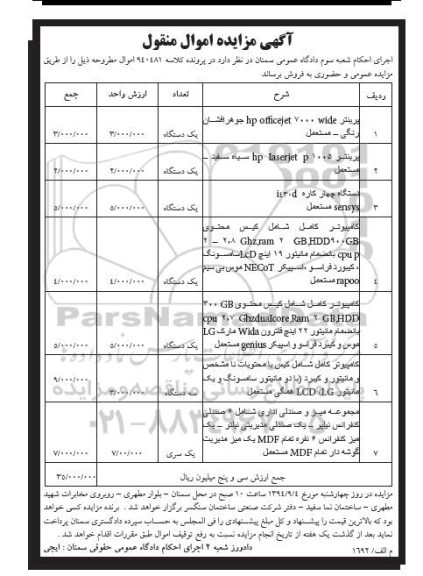 آگهی مزایده اموال منقول
اجرای احکام شعبه سوم دادگاه عمومی سمنان در نظر دارد در پرونده کلاسه ۹۴۰۴۸۱ اموال مطروحه ذیل را از طریق
مزایده عمومی و حضوری به فروش برساند
ردیف شرح تعداد ارزش واحد جمع
پرینتر hp officejet ۷۰۰۰ wide جوهرافشان
۱ رنگی – مستعمل یک دستگاه ۳/۰۰۰/۰۰۰ ۳/۰۰۰/۰۰۰
پرینتر hp laserjet p ۱۰۰۵ سیاه سفید –
۲ مستعمل یک دستگاه ۲/۰۰۰/۰۰۰ ۲/۰۰۰/۰۰۰
دستگاه چهار کاره
۳ sensys مستعمل یک دستگاه ۵/۰۰۰/۰۰۰ ۵/۰۰۰/۰۰۰
کامپیوتر کامل شامل کیس محتوی
GB,HDD۹۰۰GB ۲ Ghz,ram ۲۰۸ – ۲
cpu p بانضمام مانیتور ۱۹ اینچ LcD سامسونگ
، کیبورد فراسو ،اسپیکر NECoT موس بی سیم
۴ rapoo مستعمل یک دستگاه ۴/۰۰۰/۰۰۰ ۴/۰۰۰/۰۰۰
کامپیوتر کامل شامل کیس محتوی ۳۰۰ GB
cpu ۲۰۷ Ghzdualcore,Ram ۲ GB,HDD
بانضمام مانیتور ۲۲ اینچ فلترون Wida مارک LG
۵ موس و کیبرد فراسو و اسپیکر genius مستعمل یک دستگاه ۵/۰۰۰/۰۰۰ ۵/۰۰۰/۰۰۰
کامپیوتر کامل شامل کیس با محتویات نا مشخص
و مانیتور و کیبرد (با دو مانیتور سامسونگ و یک
۶ مانیتور LCD (LG همگی مستعمل سه دستگاه ۳/۰۰۰/۰۰۰ ۹/۰۰۰/۰۰۰
مجموعه میز و صندلی اداری شامل ۶ صندلی
کنفرانس نیلپر – یک صندلی مدیریتی نیلپر – یک
میز کنفرانس ۶ نفره تمام MDF یک میز مدیریت
۷ گوشه دار تمام MDF مستعمل یک سری ۷/۰۰/۰۰۰ ۷/۰۰۰/۰۰۰
جمع ارزش سی و پنج میلیون ریال ۳۵/۰۰۰/۰۰۰
مزایده در روز چهارشنبه مورخ ۱۳۹۴/۹/۴ ساعت ۱۰ صبح در محل سمنان – بلوار مطهری – روبروی مخابرات شهید
مطهری – ساختمان نما سفید – دفتر شرکت صنعتی ساختمان سنگسر برگزار خواهد شد . برنده مزایده کسی خواهد
بود که بالاترین قیمت را پیشنهاد و کل مبلغ پیشنهادی را فی المجلس به حساب سپرده دادگستری سمنان پرداخت
نماید بعد از گذشت یک هفته از تاریخ انجام مزایده نسبت به رفع توقیف اموال طبق مقررات اقدام خواهد شد .
دادورز شعبه ۲ اجرای احکام دادگاه عمومی حقوقی سمنان : ایجی
م الف/ ۱۶۹۲